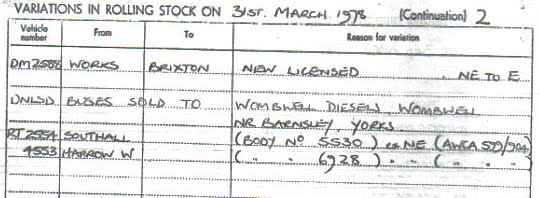 VARIATIONS IN ROLLING STOCK ON 31ST. MARCH 1978 (Continuation) 2
Vehicle number From To Reason for variation
DM2588 WORKS BRIXTON NEW LICENSED NE TO E
UNLSD BUSES SOLD TO WOMBWELL DIESELS WOMBWELL
NR BARNSLEY YORKS
RT2554 SOUTHALL (BODY No 5530) ex NE (AWCA 59/904)
4553 HARROW W ( " " 6928 ) " " ( " "